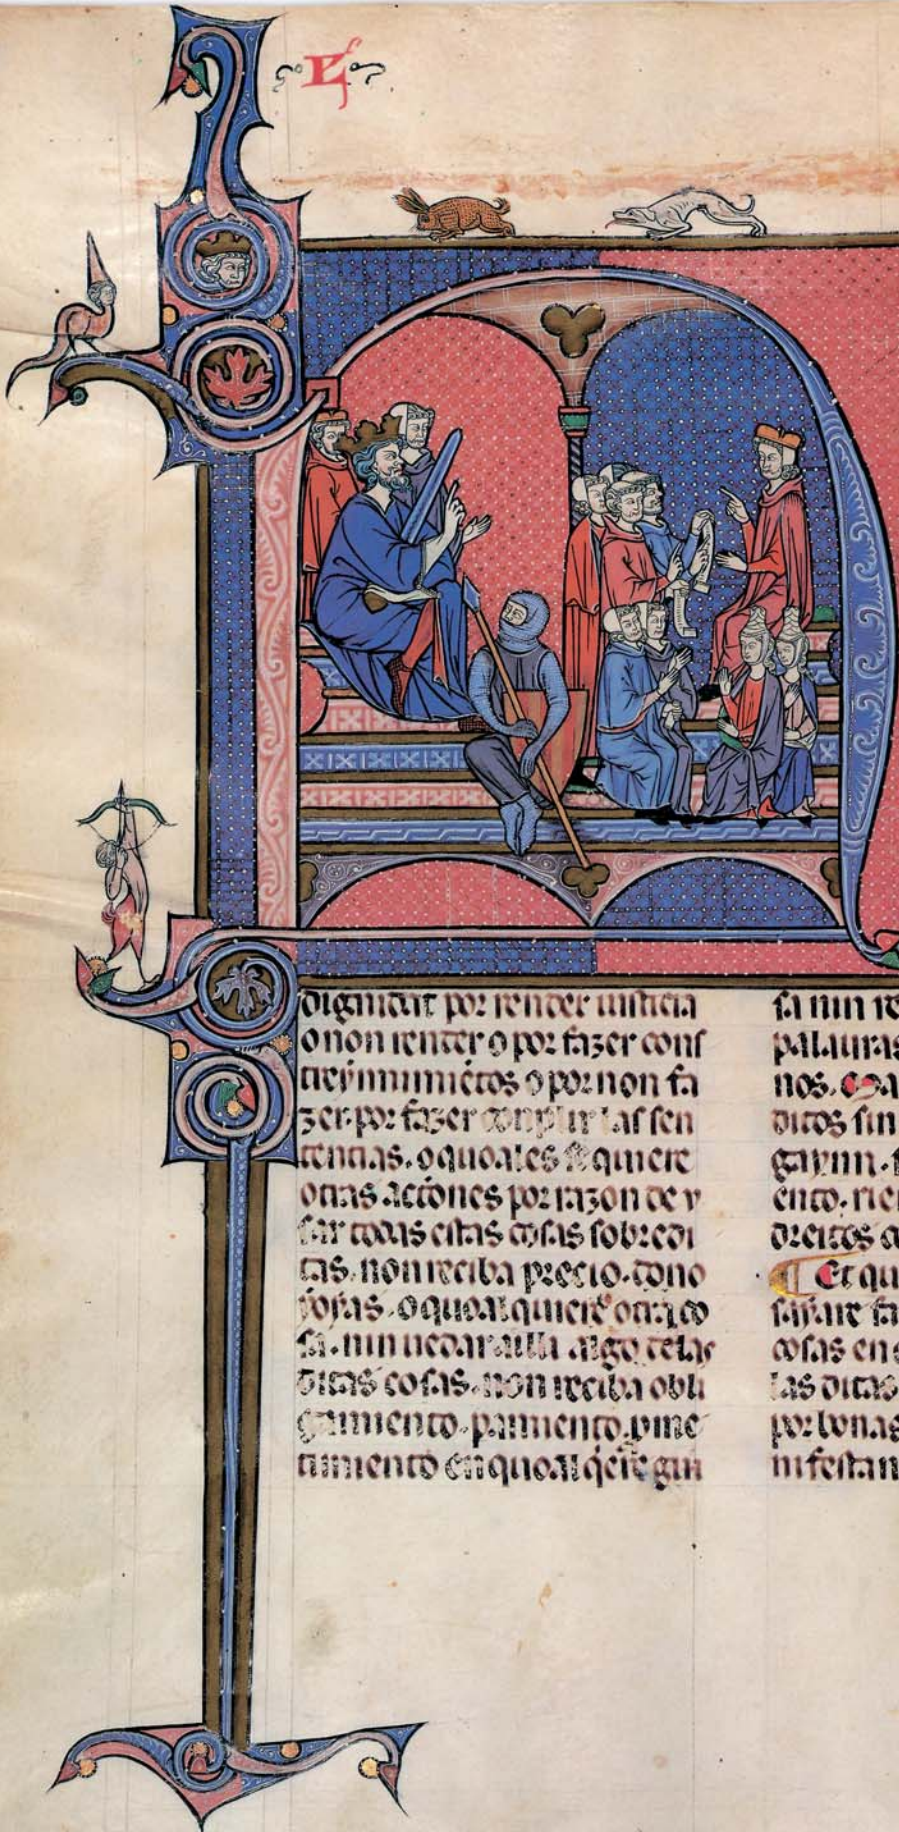 L
dignidat por render iusticia
o non render o por fazer cons
treynnimiētos o por non fa
zer. por fazer conplir las sen
tentias. o quoales se quiere
otras actiones por razon de v
sar todas estas cosas sobredi
tas. non reciba precio. dono
ioyas. o quoal quiere otra co
sa. nin uedar ailli algo delas
ditas cosas. non reciba obli
gamiento. pamiento. ꝓme
timiento en quoal q̄ere gui
sa nin re
palauras
nos.
ditos sin
gaynn.
ento. rie
dreitos a
¶ Et qu
cosas en
las ditas
por bonas
nifestan